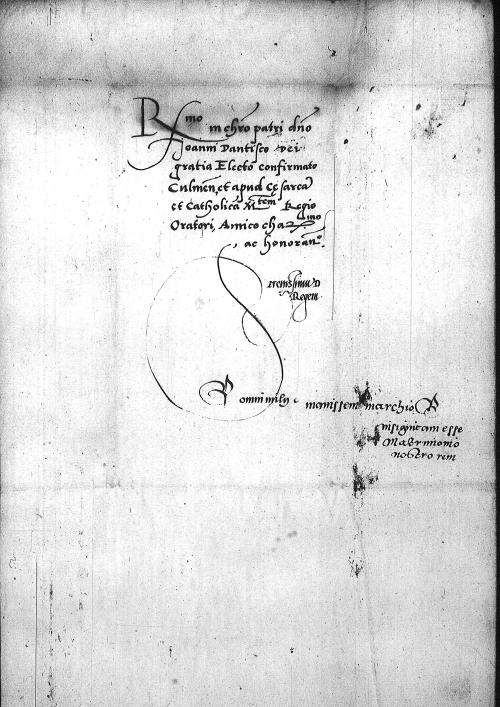 Rmo in chro patri dno
Joanni Dantisco Dei
gratia Electo confirmato
Culmen, et apud Cesarea
et Catholica Mtem Regio
Oratori, Amico chariss.mo
ac honoran.
Serenissimu D
Regem
R omni
marchio R
insignitam esse
Matrimonio
nostro rem